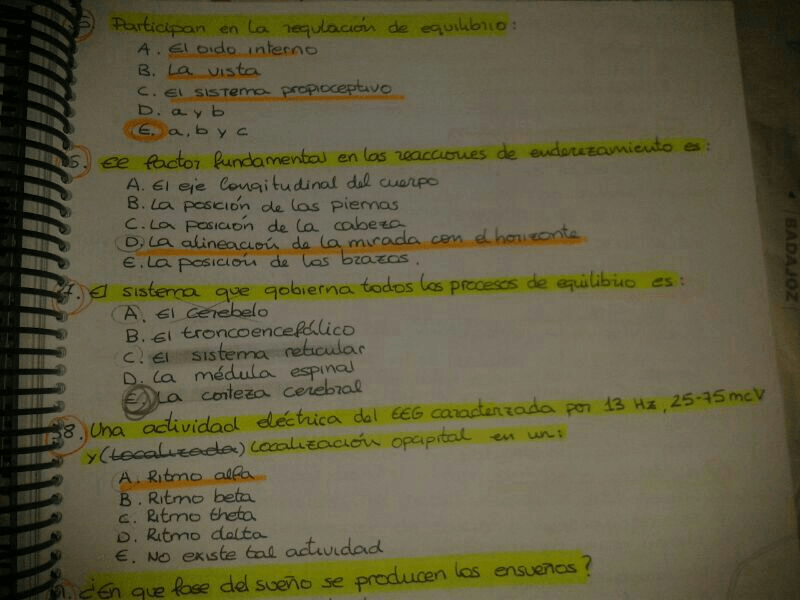 5. Participan en la regulación de equilibrio:
A. El oido interno
B. La vista
C. El sistema propioceptivo
D. a y b
E. a, b y c
6. El factor fundamental en las reacciones de enderezamiento es:
A. El eje longitudinal del cuerpo
B. La posición de las piernas
C. La posición de la cabeza
D. La alineación de la mirada con el horizonte
E. La posición de los brazos.
7. El sistema que gobierna todos los procesos de equilibrio es:
A. El cerebelo
B. El troncoencefálico
C. El sistema reticular
D. La médula espinal
E. La corteza cerebral
38. Una actividad eléctrica del EEG caracterizada por 13 Hz, 25-75 mcV
y (Localizada) Localización opapital en un:
A. Ritmo alfa
B. Ritmo beta
C. Ritmo theta
D. Ritmo delta
E. No existe tal actividad
¿En que fase del sueño se producen los ensueños?
BADAJOZ